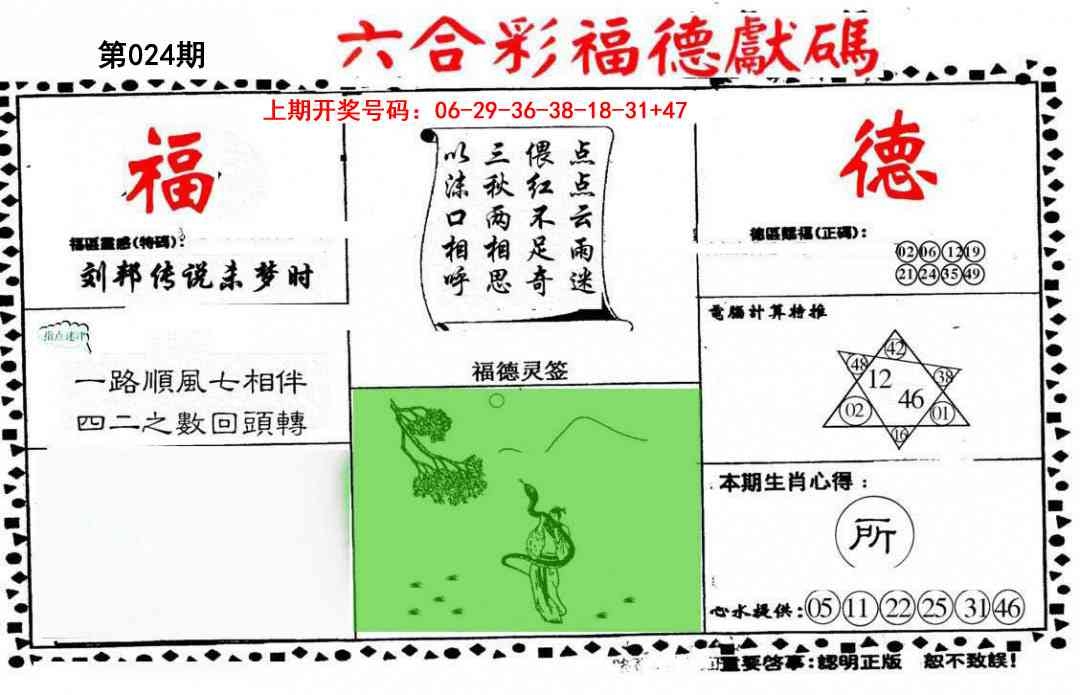 第024期
六合彩福德獻碼
上期开奖号码：06-29-36-38-18-31+47
福
福區靈感(特碼)：
刘邦传说未梦时
指点迷津
一路順風七相伴
四二之數回頭轉
点点云雨迷
偎红不足奇
三秋两相思
以沫口相呼
福德灵签
德
德區賜福(正碼)：
02 06 12 19
21 24 35 49
電腦計算特推
42
48 38
12
46
02 01
16
本期生肖心得：
所
心水提供：05 11 22 25 31 46
重要啓事：認明正版 恕不致誤！